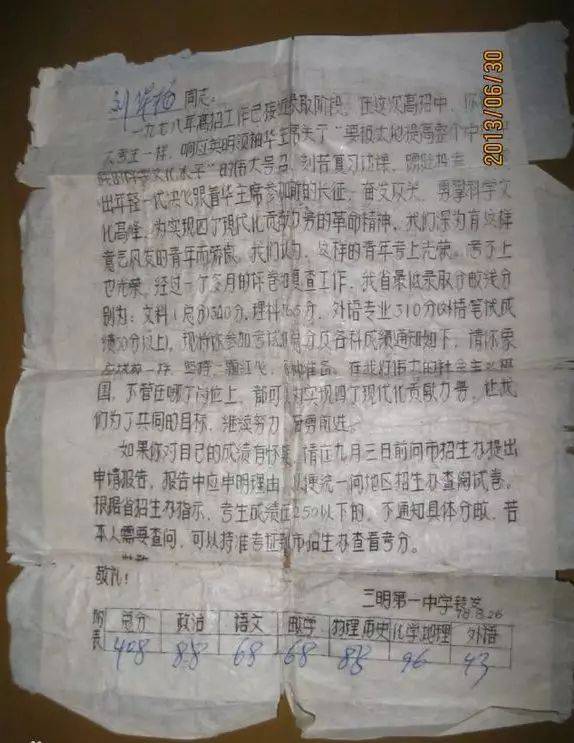 刘 同志:
一九七八年高招工作已接近录取阶段。在这次高招中,你
考生一样,响应英明领袖华主席关于“要极大地提高整个中
族的科学文化水平”的伟大号召,刻苦复习功课,踊跃投考,
出年轻一代决心跟着华主席参加新的长征,奋发攻关,勇攀科学文
化高峰,为实现四个现代化贡献力量的革命精神。我们深为有这样
意气风发的青年而骄傲。我们认为,这样的青年考上光荣。考不上
也光荣。经过一个多月的评卷和复查工作,我省最低录取分数线分
别为:文科(总分)340分,理科365分,外语专业310分(外语笔试成
绩50分以上)。现将你参加考试的总分及各科成绩通知如下,请你象
一样,坚持一颗红心,准备。在我们伟大的社会主义祖
国,不管在哪个岗位上,都可以对实现四个现代化贡献力量,让我
们为了共同的目标,继续努力,奋勇前进。
如果你对自己的成绩有怀疑,请在九月三日前向市招生办提出
申请报告,报告中应申明理由,以便统一向地区招生办查阅试卷。
根据省招生办指示,考生成绩在250以下的,不通知具体分数,若
本人需要查问,可以持准考证到市招生办查看考分。
敬礼!
三明第一中学转发
78.8.26
附表 总分 政治 语文 数学 物理历史 化学地理 外语
408 88 68 68 88 96 43
2013/06/30